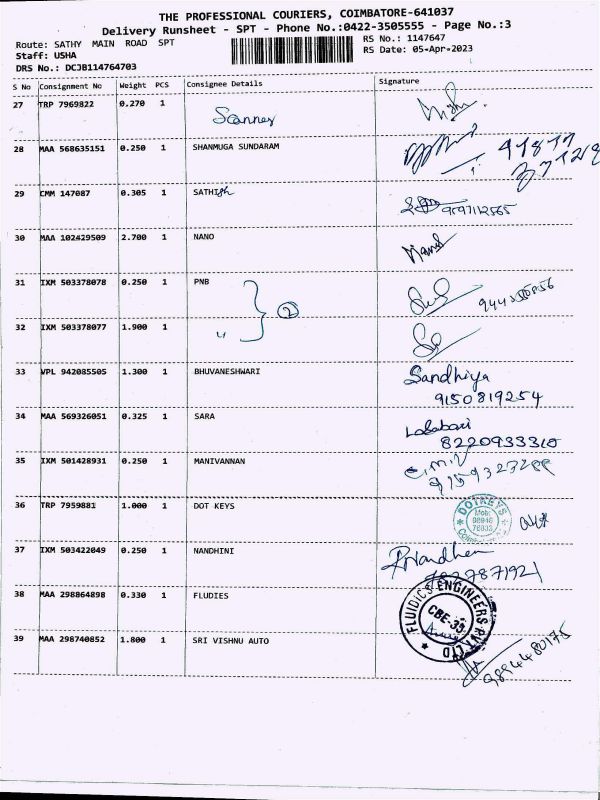 THE PROFESSIONAL COURIERS, COIMBATORE-641037
Delivery Runsheet - SPT - Phone No.:0422-3505555 - Page No.:3
Route: SATHY MAIN ROAD SPT
RS No.: 1147647
Staff: USHA
RS Date: 05-Apr-2023
DRS No.: DCJB114764703
S No Consignment No Weight PCS Consignee Details Signature
27 TRP 7969822 0.270 1 Scanner
28 MAA 568635151 0.250 1 SHANMUGA SUNDARAM
29 CMM 147087 0.305 1 SATHISh 9597112565
30 MAA 102429509 2.700 1 NANO Nano
31 IXM 503378078 0.250 1 PNB
2
32 IXM 503378077 1.900 1 "
33 VPL 942085505 1.300 1 BHUVANESHWARI Sandhiya
9150819254
34 MAA 569326051 0.325 1 SARA
8220933310
35 IXM 501428931 0.250 1 MANIVANNAN
36 TRP 7959881 1.000 1 DOT KEYS DOTKEYS
37 IXM 503422049 0.250 1 NANDHINI
38 MAA 298864898 0.330 1 FLUDIES FLUIDICS ENGINEERS PVT LTD
CBE-35
39 MAA 298740852 1.800 1 SRI VISHNU AUTO
9894480175